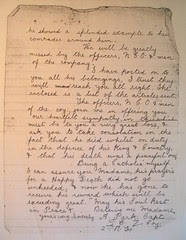 he should a splendid example to his
comrades around him.
He will be greatly
missed by the officers, N.C.O's & men
of the company.
I have posted on to
you all his belongings, I trust they
will reach you all right. The
enclosed is a list of the articles sent.
The officers, N.C.O's & men
of the coy. join me in offering you
our heartfelt sympathy,
must be
ask you to take consolation in the
fact that he died whilst on duty
in the defence of his King & Country,
& that his death was a peaceful one.
Being a Catholic myself
I can assure you Madame, his prayers
for a Happy Death did not go
unheeded, & now he has gone to
receive his reward which will be
everlasting great. May his Soul Rest
in Peace. Believe me Madame,
yours very sincerely A. Park, Capt.